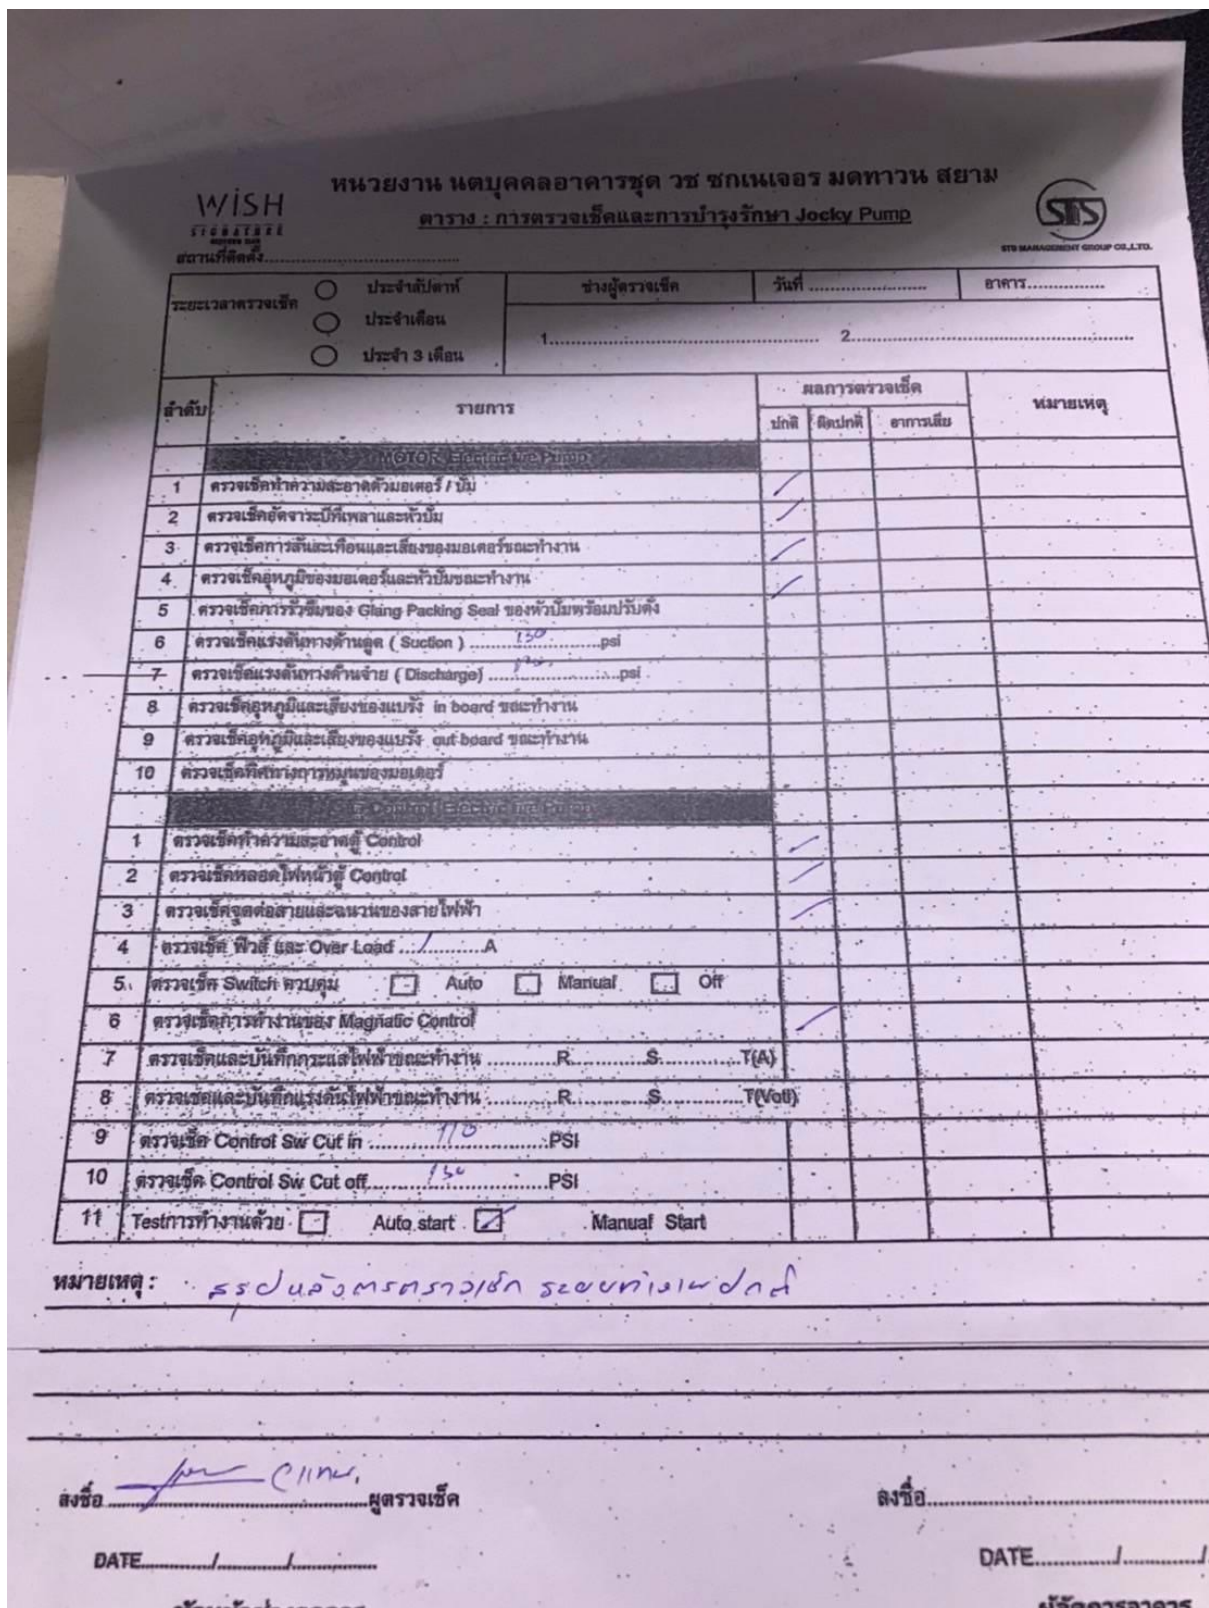 WISH
SIGNATURE
หนวยงาน นตบุคคลอาคารชุด วช ซกเนเจอร มดทาวน สยาม
ตาราง : การตรวจเช็คและการบำรุงรักษา Jocky Pump
STS
STS MANAGEMENT GROUP CO.,LTD.
สถานที่ติดตั้ง
ระยะเวลาตรวจเช็ค ประจำสัปดาห์ ช่างผู้ตรวจเช็ค วันที่ อาคาร
ประจำเดือน 1 2
ประจำ 3 เดือน
ลำดับ รายการ ผลการตรวจเช็ค หมายเหตุ
ปกติ ผิดปกติ อาการเสีย
MOTOR Electric Fire Pump
1 ตรวจเช็คทำความสะอาดตัวมอเตอร์ / ปั๊ม /
2 ตรวจเช็คอัดจาระบีที่เพลาและหัวปั๊ม /
3 ตรวจเช็คการสั่นสะเทือนและเสียงของมอเตอร์ขณะทำงาน /
4 ตรวจเช็คอุหภูมิของมอเตอร์และหัวปั๊มขณะทำงาน /
5 ตรวจเช็คการรั่วซึมของ Glang Packing Seal ของหัวปั๊มพร้อมปรับตั้ง
6 ตรวจเช็คแรงดันทางด้านดูด ( Suction ) 130 psi
7 ตรวจเช็คแรงดันทางด้านจ่าย ( Discharge) psi
8 ตรวจเช็คอุหภูมิและเสียงของแบริ่ง in board ขณะทำงาน
9 ตรวจเช็คอุหภูมิและเสียงของแบริ่ง out board ขณะทำงาน
10 ตรวจเช็คทิศทางการหมุนของมอเตอร์
Control Electric Fire Pump
1 ตรวจเช็คทำความสะอาดตู้ Control /
2 ตรวจเช็คหลอดไฟหน้าตู้ Control /
3 ตรวจเช็คจุดต่อสายและฉนวนของสายไฟฟ้า /
4 ตรวจเช็ค ฟิวส์ และ Over Load / A
5 ตรวจเช็ค Switch ควบคุม Auto Manual Off
6 ตรวจเช็คการทำงานของ Magnatic Control /
7 ตรวจเช็คและบันทึกกระแสไฟฟ้าขณะทำงาน R S T(A)
8 ตรวจเช็คและบันทึกแรงดันไฟฟ้าขณะทำงาน R S T(Volt)
9 ตรวจเช็ค Control Sw Cut in 110 PSI
10 ตรวจเช็ค Control Sw Cut off 130 PSI
11 Testการทำงานด้วย Auto start / Manual Start
หมายเหตุ : สรุปหลังการตรวจเช็ก ระบบทำงานปกติ
ลงชื่อ ผู้ตรวจเช็ค ลงชื่อ
DATE / / DATE / /
ผู้จัดการอาคาร